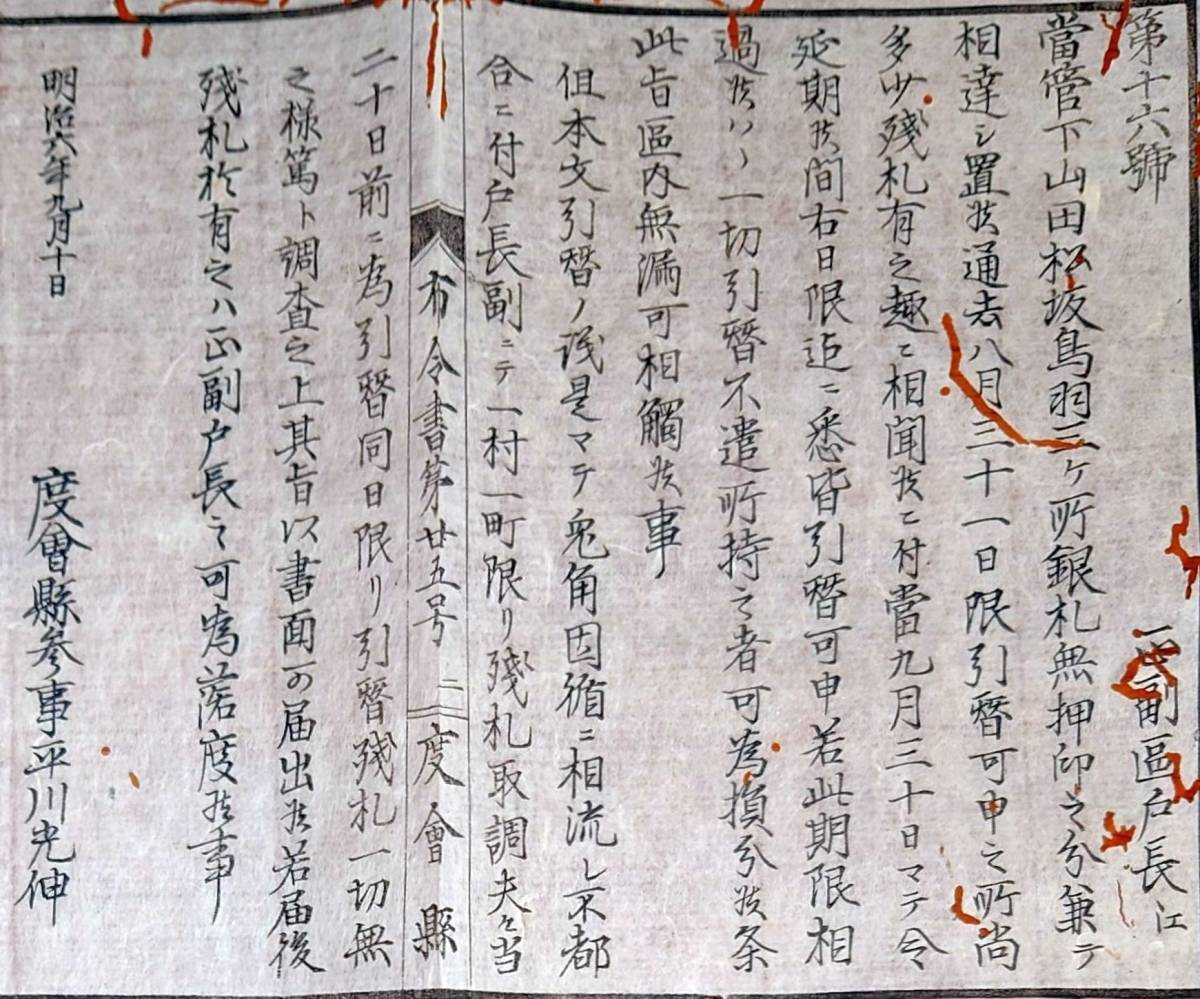 第十六號
正副區戸長江
當管下山田松坂鳥羽三ケ所銀札無押印之分兼テ
相達シ置候通去八月三十一日限引替可申之所尚
多少残札有之趣ニ相聞候ニ付當九月三十日マテ令
延期候間右日限迄ニ悉皆引替可申若此期限相
過候ハヽ一切引替不遣所持之者可為損分候条
此旨區内無漏可相觸候事
但本文引替ノ儀是マテ兎角因循ニ相流レ不都
合ニ付戸長副ニテ一村一町限リ残札取調夫々当
布令書第廿五号 二 度會縣
二十日前ニ為引替同日限リ引替残札一切無
之様篤ト調査之上其旨以書面可届出候若届後
残札於有之ハ正副戸長之可為落度候事
明治六年九月十日
度會縣參事平川光伸